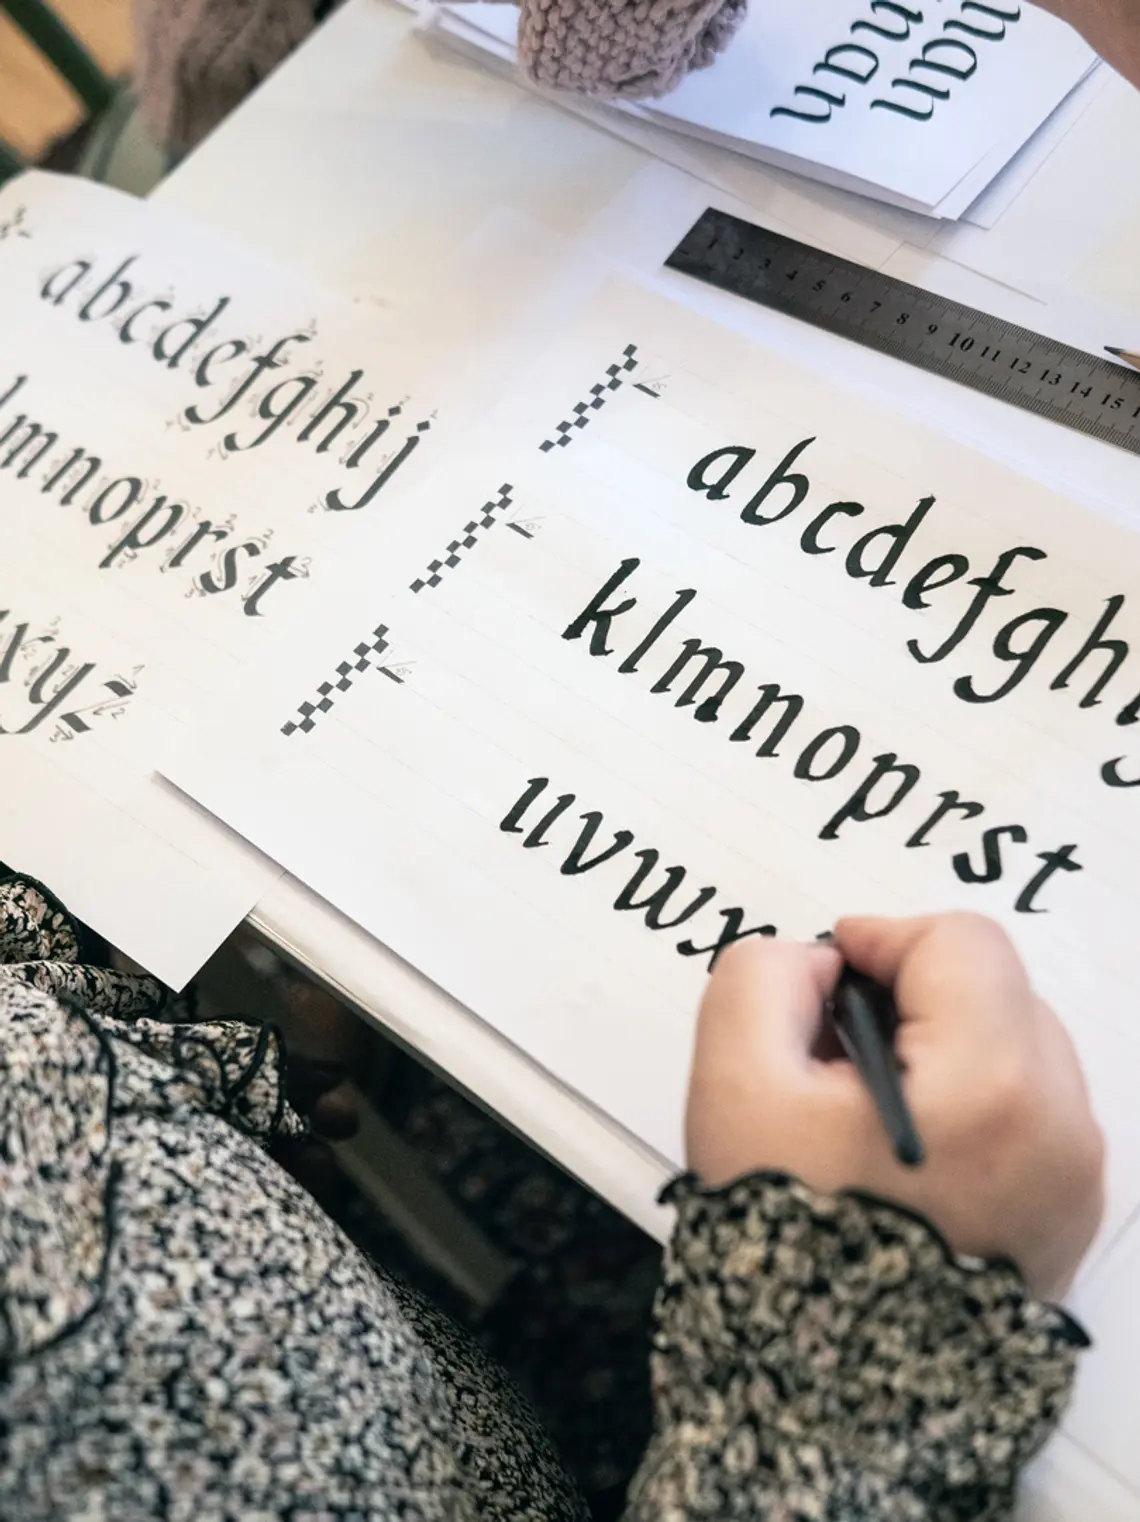 abcdefghij
lmnoprst
xyz
abcdefgh
klmnoprst
uvwx
1 2 3 4 5 6 7 8 9 10 11 12 13 14 15
nan
nan